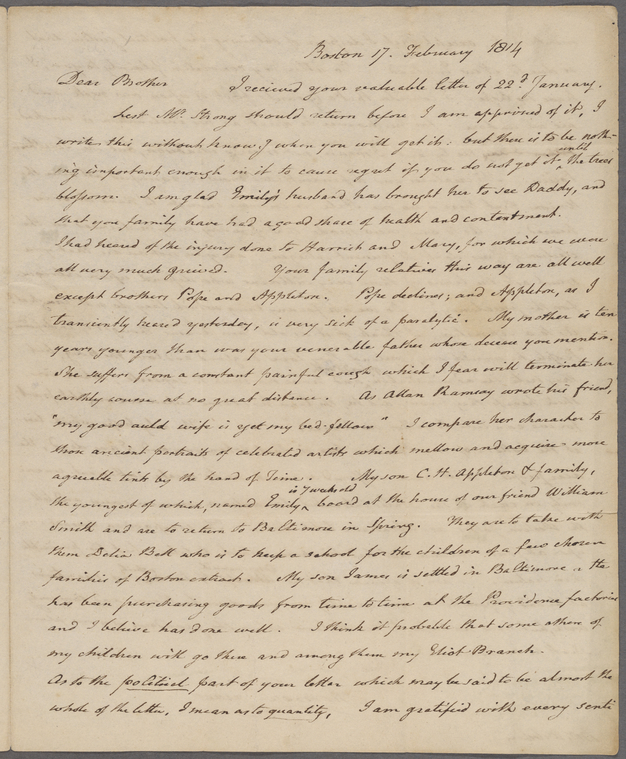 Boston 17. February 1814
Dear Brother I recieved your valuable letter of 22d January.
Lest Mr. Strong should return before I am apprised of it, I
write this without know.g when you will get it: but there is to be noth-
until
ing important enough in it to cause regret if you do not get it, the trees
blossom. I am glad Emily's husband has brought her to see Daddy, and
that you family have had a good share of health and contentment.
I had heared of the injury done to Harriet and Mary, for which we were
all very much grieved. Your family relatives this way are all well
except brothers Pope and Appleton. Pope declines; and Appleton, as I
transiently heared yesterday, is very sick of a paralytic. My mother is ten
years younger than was your venerable father whose decease you mention.
She suffers from a constant painful cough which I fear will terminate her
earthly course at no great distance. As Allan Ramsay wrote his friend,
"my good auld wife is yet my bed-fellow" I compare her character to
those ancient portraits of celebrated artists which mellow and acquire more
agreeable tints by the hand of Time. My son C. H. Appleton & family,
is 7 weeks old
the youngest of which, named Emily, board at the house of our friend William
Smith and are to return to Baltimore in Spring. They are to take with
them Delia Bell who is to keep a school for the children of a few chosen
families of Boston extract. My son James is settled in Baltimore. He
has been purchasing goods from time to time at the Providence factories
and I believe has done well. I think it probable that some others of
my children will go there and among them my Eliot Branch.
As to the political part of your letter which may be said to be almost the
whole of the letter, I mean as to quantity, I am gratified with every senti